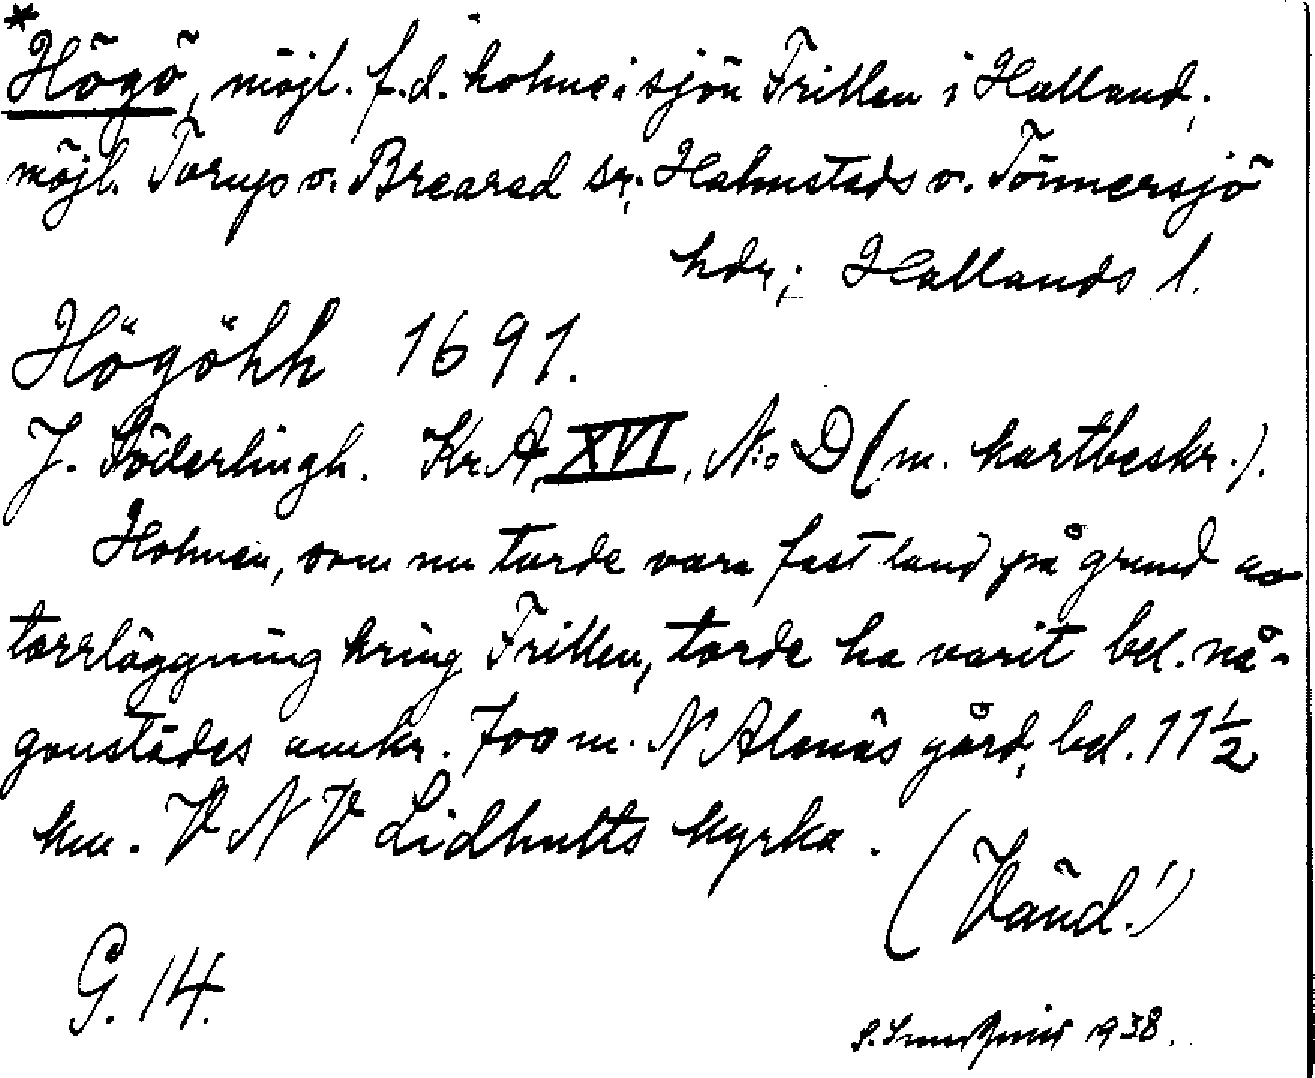 *Högö, möjl. f.d. holme i sjön Frillen i Halland,
möjl. Torup o. Breared sr, Halmstads o. Tönnersjö
hdr; Hallands l.
Högöhh 1691.
J. Söderlingh. Kr.A, XVI, N:o D (m. kartbeskr.).
Holmen, som nu torde vara fast land på grund av
torrläggning kring Frillen, torde ha varit bel. nå-
gonstädes omkr. 700 m. N Alenäs gård, bel. 11 ½
km. V N V Lidhults kyrka.
(Vänd!)
G. 14.
1938.